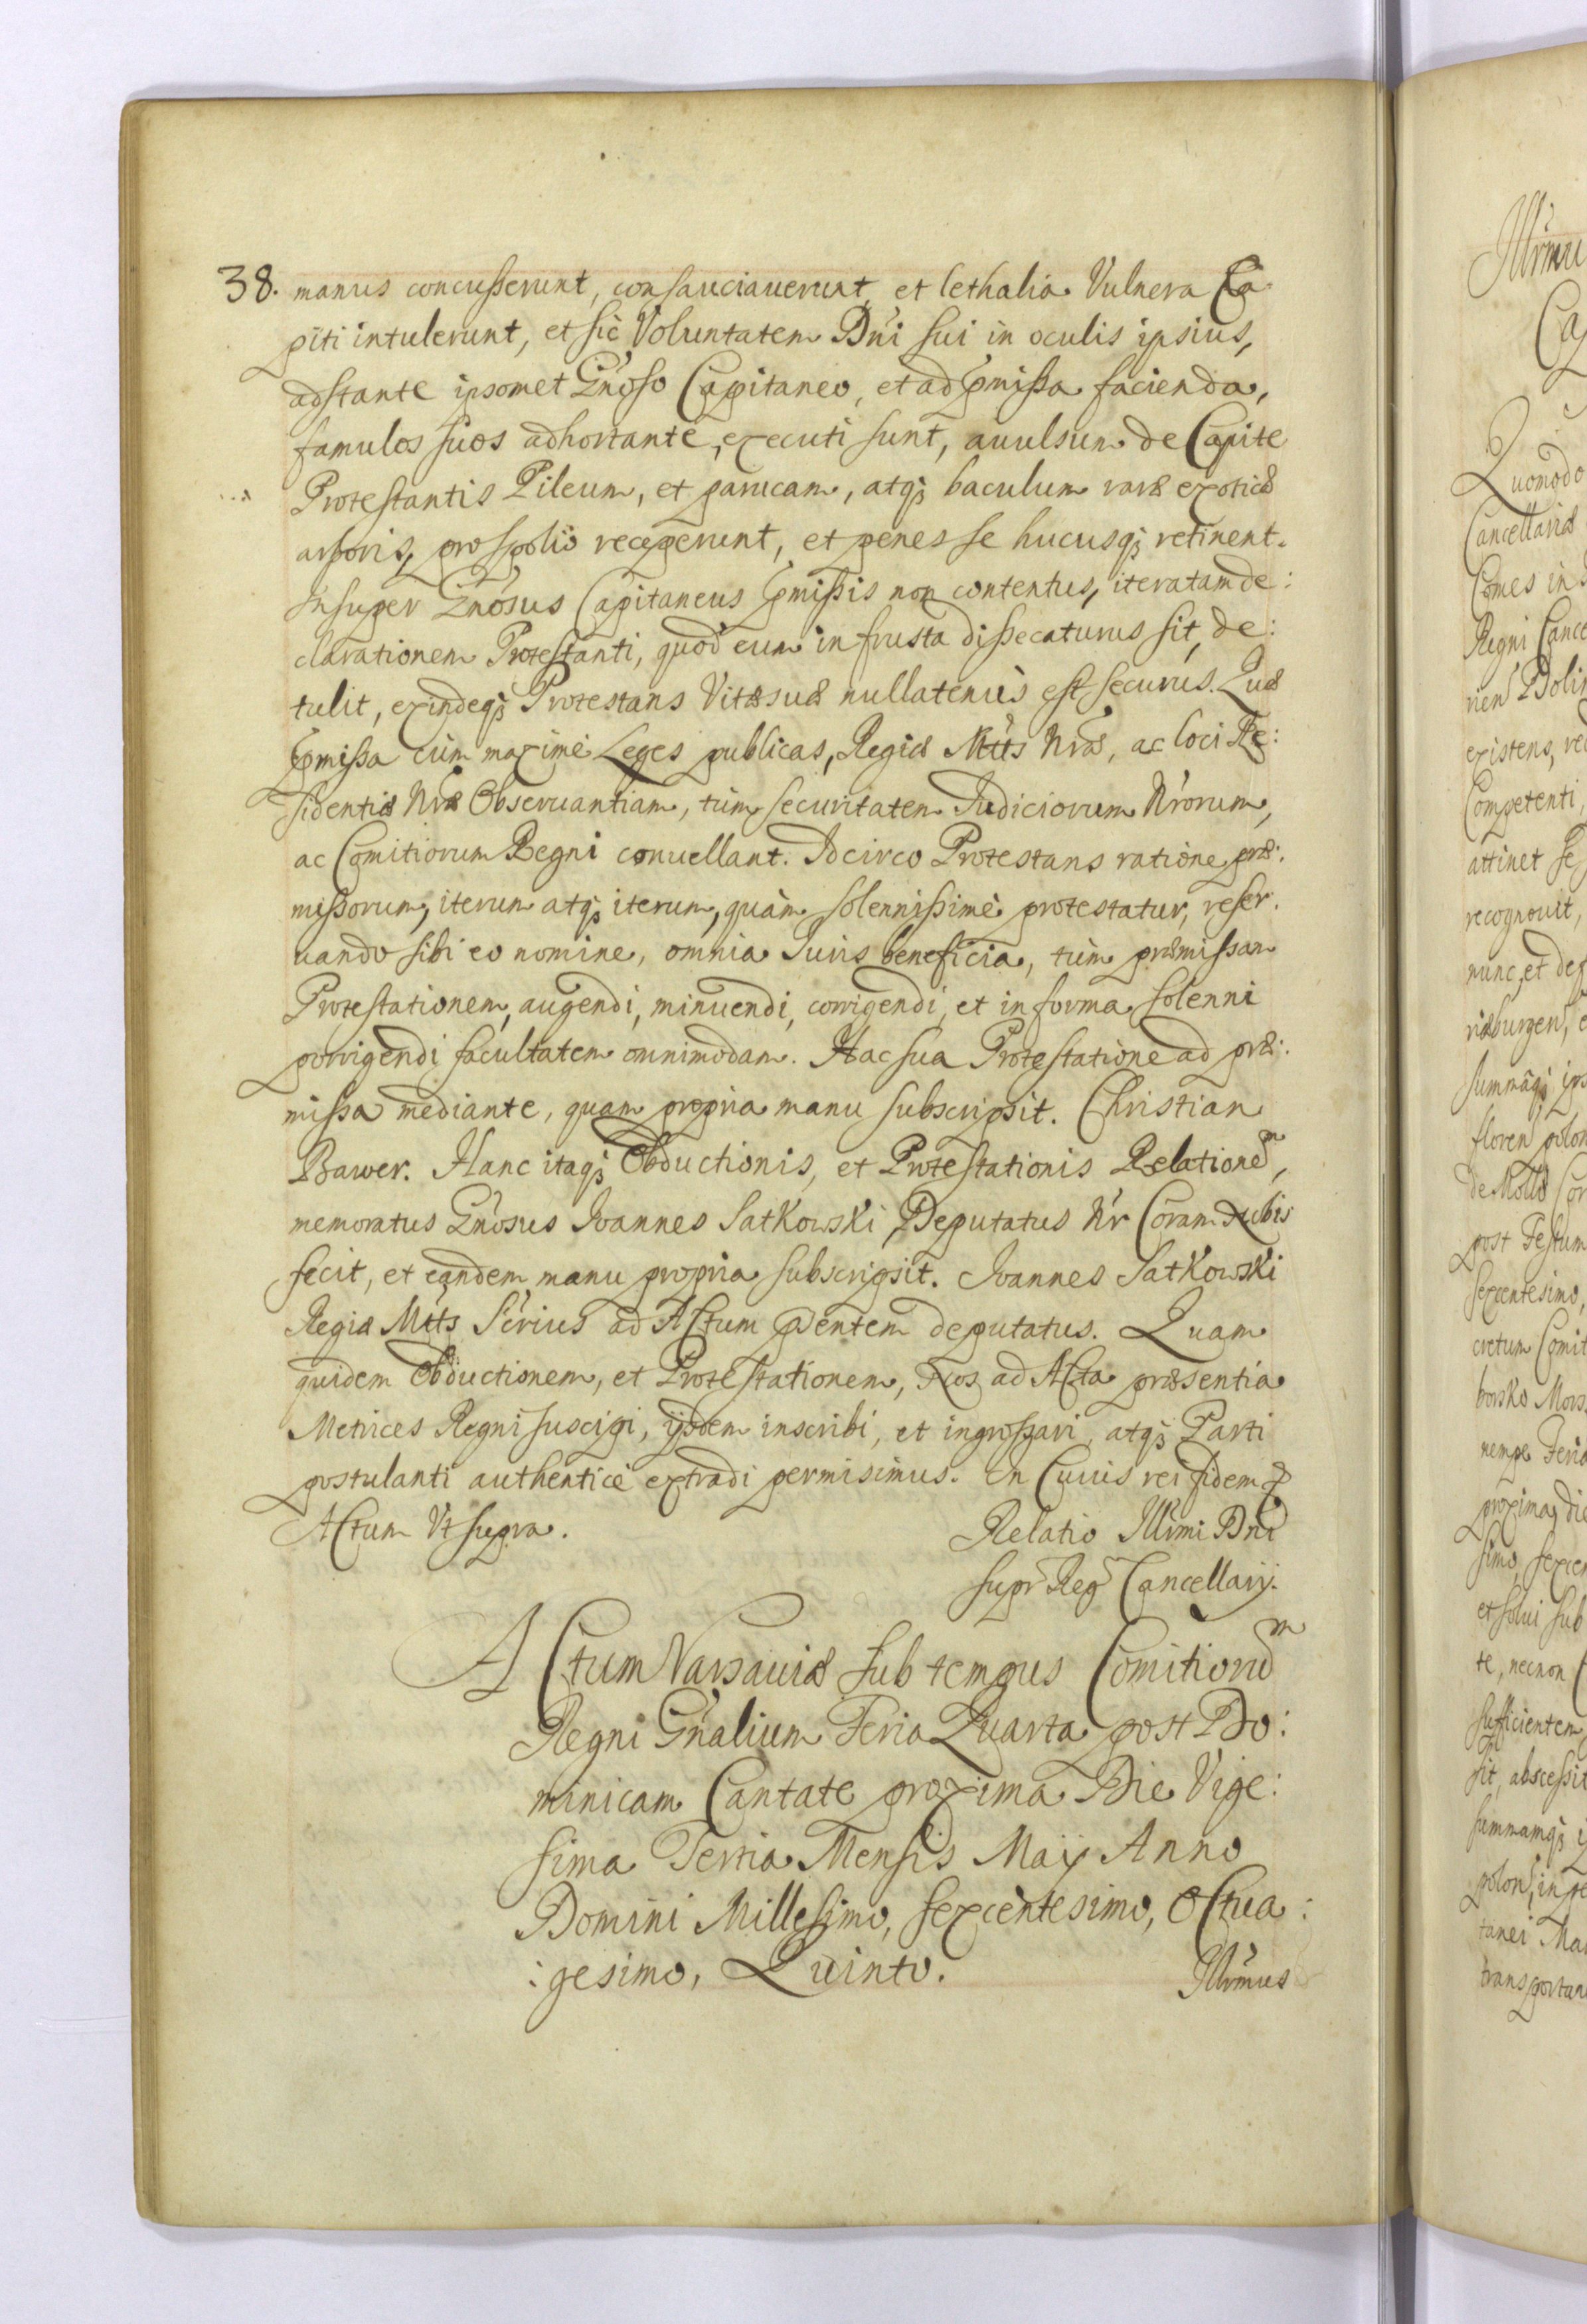 38. manus concusserunt, consauciauerunt, et lethalia Vulnera Ca
piti intulerunt, et sic Voluntatem Dni sui in oculis ipsius,
adstante ipsomet Gnoso Capitaneo, et ad pmissa facienda,
famulos suos adhortante, executi sunt, auulsum de Capite
Protestantis Pileum, et parucam, atq; baculum raræ exoticæ
arboris, pro spolio receperunt, et penes se hucusq; retinent.
Insuper Gnosus Capitaneus pmissis non contentus, iteratam de:
clarationem Protestanti, quod eum in frusta dissecaturus sit, de:
tulit, exindeq; Protestans Vitæ suæ nullatenus est securus. Quæ
pmissa cum maxime Leges publicas, Regiæ Mttis Nræ, ac loci Re:
sidentiæ Nræ Obseruantiam, tum securitatem Iudiciorum Nrorum,
ac Comitiorum Regni conuellant. Idcirco Protestans ratione præ:
missorum, iterum atq; iterum, quam solennissime protestatur, reser.
uando sibi eo nomine, omnia Iuris beneficia, tum præmissam
Protestationem, augendi, minuendi, corrigendi, et in forma solenni
porrigendi facultatem omnimodam. Hac sua Protestatione ad præ:
missa mediante, quam propria manu subscripsit. Christian
Bawer. Hanc itaq; Obductionis, et Protestationis Relatione͂m,
memoratus Gnosus Ioannes Satkowski Deputatus Nr Coram Nobis
fecit, et eandem manu propria subscripsit. Ioannes Satkowski
Regiæ Mttis Sērius ad Actum pñtem deputatus. Quam
quidem Obductionem, et Protestationem, Nos ad Acta præsentia
Metrices Regni suscipi, ijsdem inscribi, et ingrossari, atq; Parti
postulanti authentice extradi permisimus. In Cuius rei fidem
Actum Vt supra.
Relatio Illrmi Dni
supr Reg Cancellarij.
Actum Varsauiæ sub tempus Comitioru͂m
Regni Gnalium Feria Quarta post Do:
minicam Cantate proxima Die Vige:
sima Tertia Mensis Maij Anno
Domini Millesimo, sexcentesimo, Octua:
:gesimo, Quinto.
Illrmus